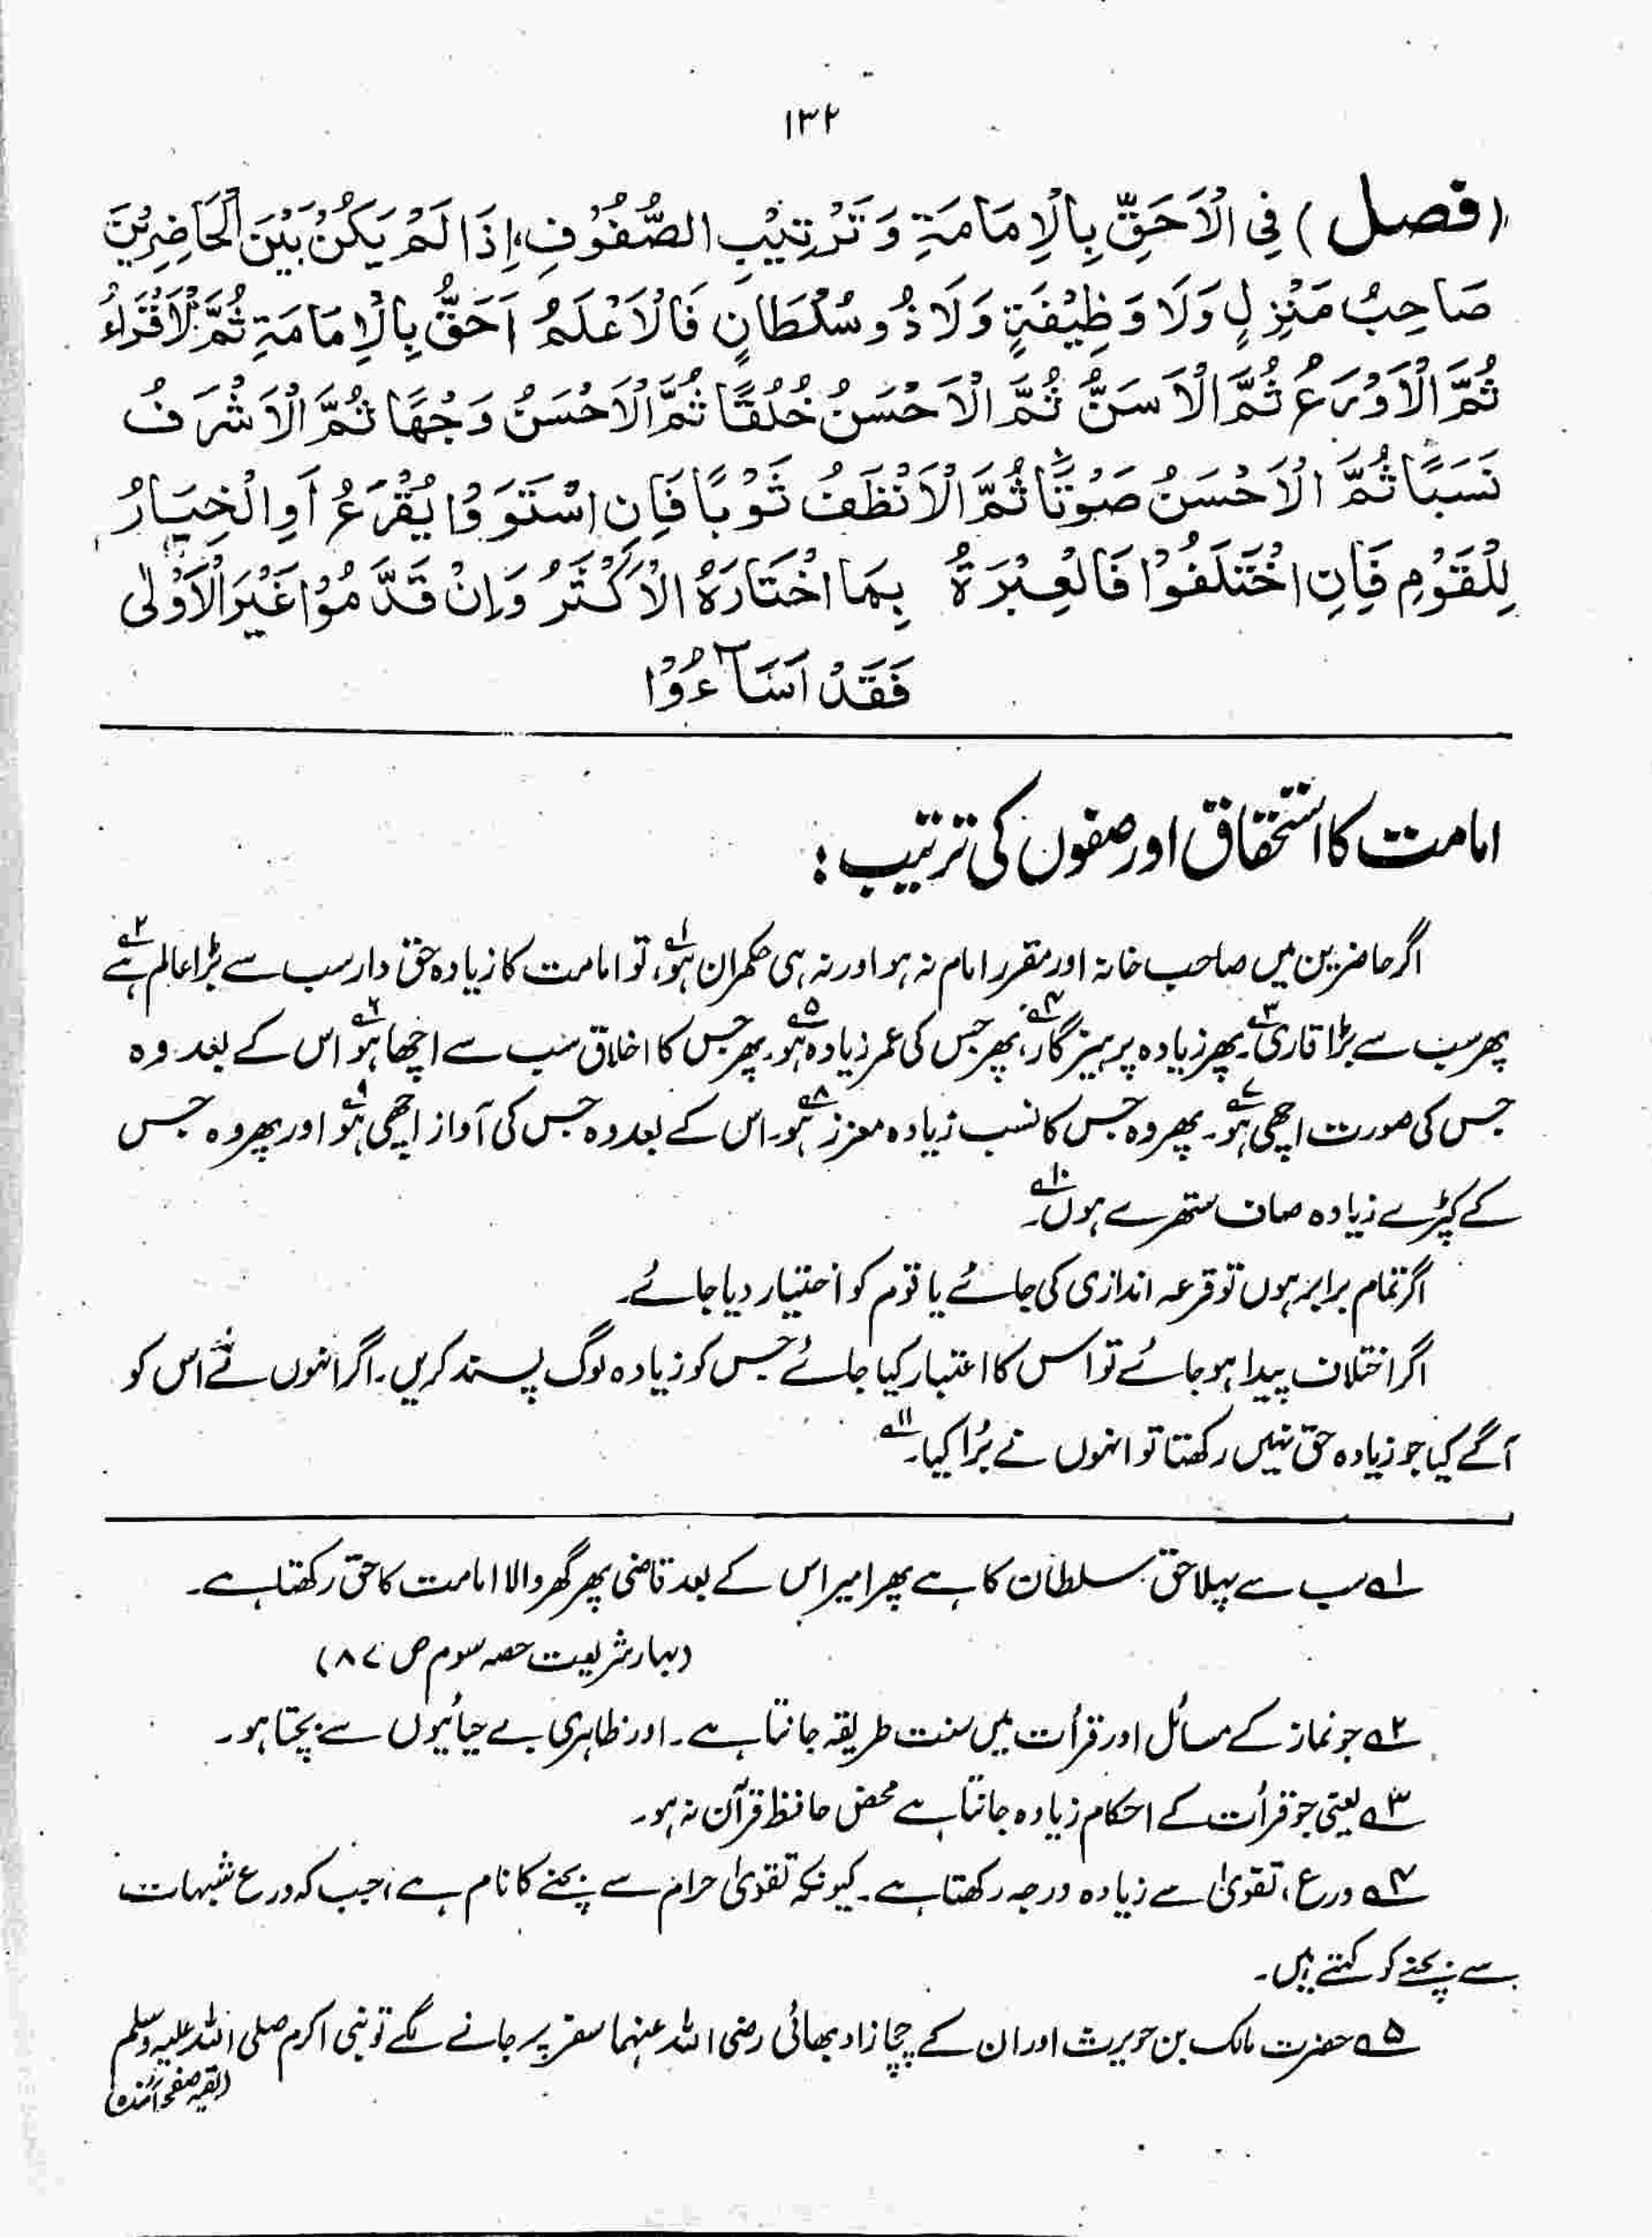 ۱۳۲
(فصل) فِی الْاَحَقِّ بِالْاِمَامَةِ وَ تَرْتِیْبِ الصُّفُوْفِ، اِذَا لَمْ یَکُنْ بَیْنَ الْحَاضِرِیْنَ
صَاحِبُ مَنْزِلٍ وَلَا وَظِیْفَةٍ وَلَا ذُو سُلْطَانٍ فَالْاَعْلَمُ اَحَقُّ بِالْاِمَامَةِ ثُمَّ الْاَقْرَاءُ
ثُمَّ الْاَوْرَعُ ثُمَّ الْاَسَنُّ ثُمَّ الْاَحْسَنُ خُلُقًا ثُمَّ الْاَحْسَنُ وَجْهًا ثُمَّ الْاَشْرَفُ
نَسَبًا ثُمَّ الْاَحْسَنُ صَوْتًا ثُمَّ الْاَنْظَفُ ثَوْبًا فَاِنِ اسْتَوَوْا یُقْرَعُ اَوِ الْخِیَارُ
لِلْقَوْمِ فَاِنِ اخْتَلَفُوْا فَالْعِبْرَةُ بِمَا اخْتَارَهُ الْاَکْثَرُ وَاِنْ قَدَّمُوْا غَیْرَ الْاَوْلٰی
فَقَدْ اَسَآءُوْا
امامت کا استحقاق اور صفوں کی ترتیب:
اگر حاضرین میں صاحب خانہ اور مقرر امام نہ ہو اور نہ ہی حکمران ہو۱ے، تو امامت کا زیادہ حق دار سب سے بڑا عالم ہے۲ے
پھر سب سے بڑا قاری۳ے۔ پھر زیادہ پرہیزگار۴ے، پھر جس کی عمر زیادہ ہو۵ے۔ پھر جس کا اخلاق سب سے اچھا ہو۶ے اس کے بعد وہ
جس کی صورت اچھی ہو۷ے۔ پھر وہ جس کا نسب زیادہ معزز ہو۸ے۔ اس کے بعد وہ جس کی آواز اچھی ہو۹ے اور پھر وہ جس
کے کپڑے زیادہ صاف ستھرے ہوں۱۰ے۔
اگر تمام برابر ہوں تو قرعہ اندازی کی جائے یا قوم کو اختیار دیا جائے۔
اگر اختلاف پیدا ہو جائے تو اس کا اعتبار کیا جائے جس کو زیادہ لوگ پسند کریں۔ اگر انہوں نے اس کو
آگے کیا جو زیادہ حق نہیں رکھتا تو انہوں نے بُرا کیا۔۱۱ے
۱ے سب سے پہلا حق سلطان کا ہے پھر امیر اس کے بعد قاضی پھر گھر والا امامت کا حق رکھتا ہے۔
(بہار شریعت حصہ سوم ص ۸۷)
۲ے جو نماز کے مسائل اور قرأت میں سنت طریقہ جانتا ہے۔ اور ظاہری بے حیائیوں سے بچتا ہو۔
۳ے یعنی جو قرأت کے احکام زیادہ جانتا ہے محض حافظ قرآن نہ ہو۔
۴ے ورع، تقویٰ سے زیادہ درجہ رکھتا ہے۔ کیونکہ تقویٰ حرام سے بچنے کا نام ہے، جب کہ ورع شبہات
سے بچنے کو کہتے ہیں۔
۵ے حضرت مالک بن حویرث اور ان کے چچا زاد بھائی رضی اللہ عنہما سفر پر جانے لگے تو نبی اکرم صلی اللہ علیہ وسلم
(بقیہ صفحہ آئندہ)